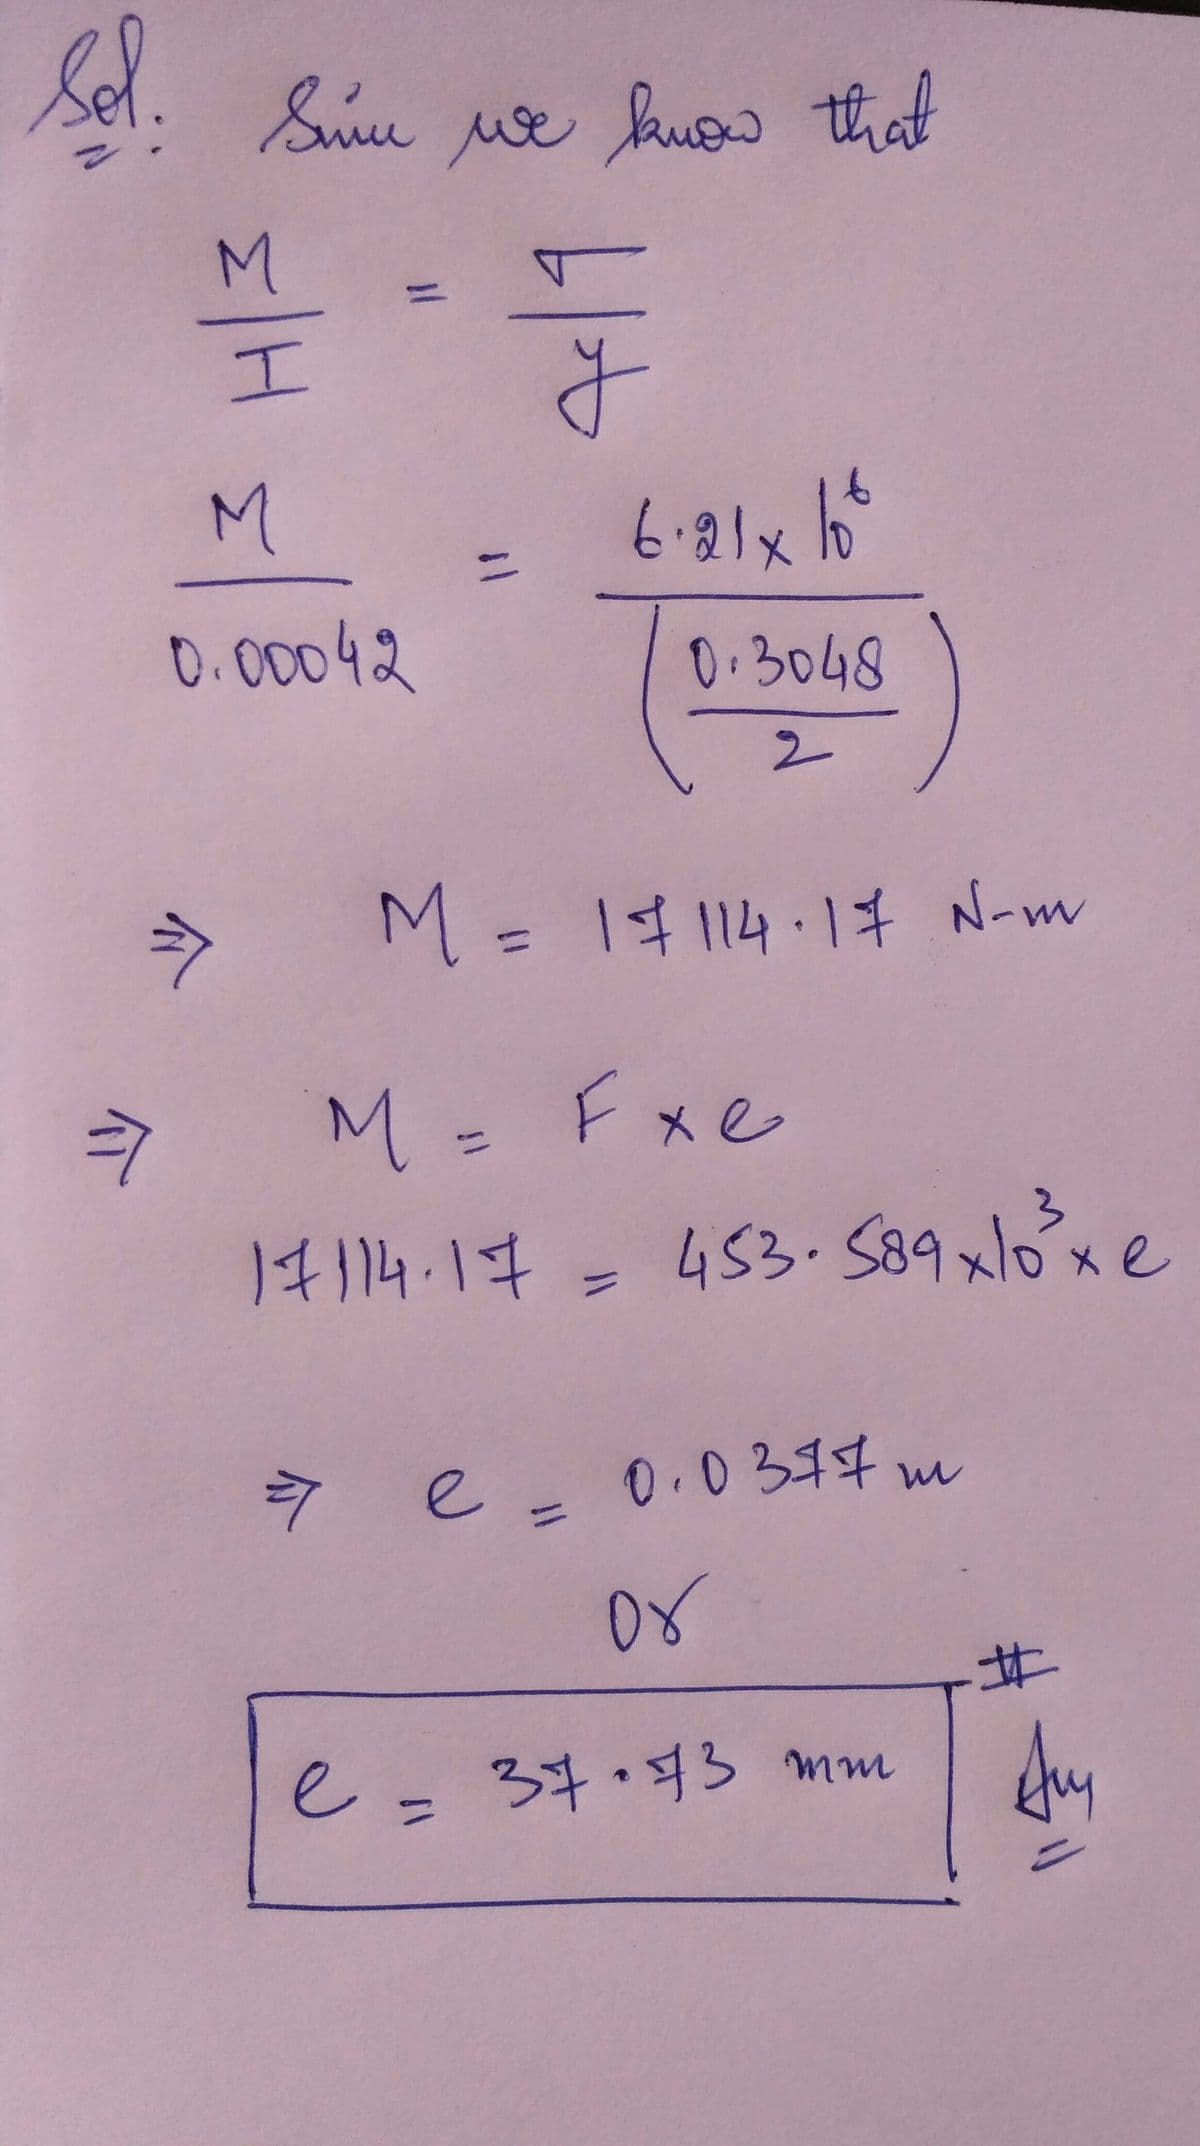 Sol. Since we know that
M/I = σ/y
M/0.00042 = 6.21x10⁶/(0.3048/2)
⇒ M = 17114.17 N-m
⇒ M = F x e
17114.17 = 453.589x10³x e
⇒ e = 0.0377 m
or
e = 37.73 mm #
Ans